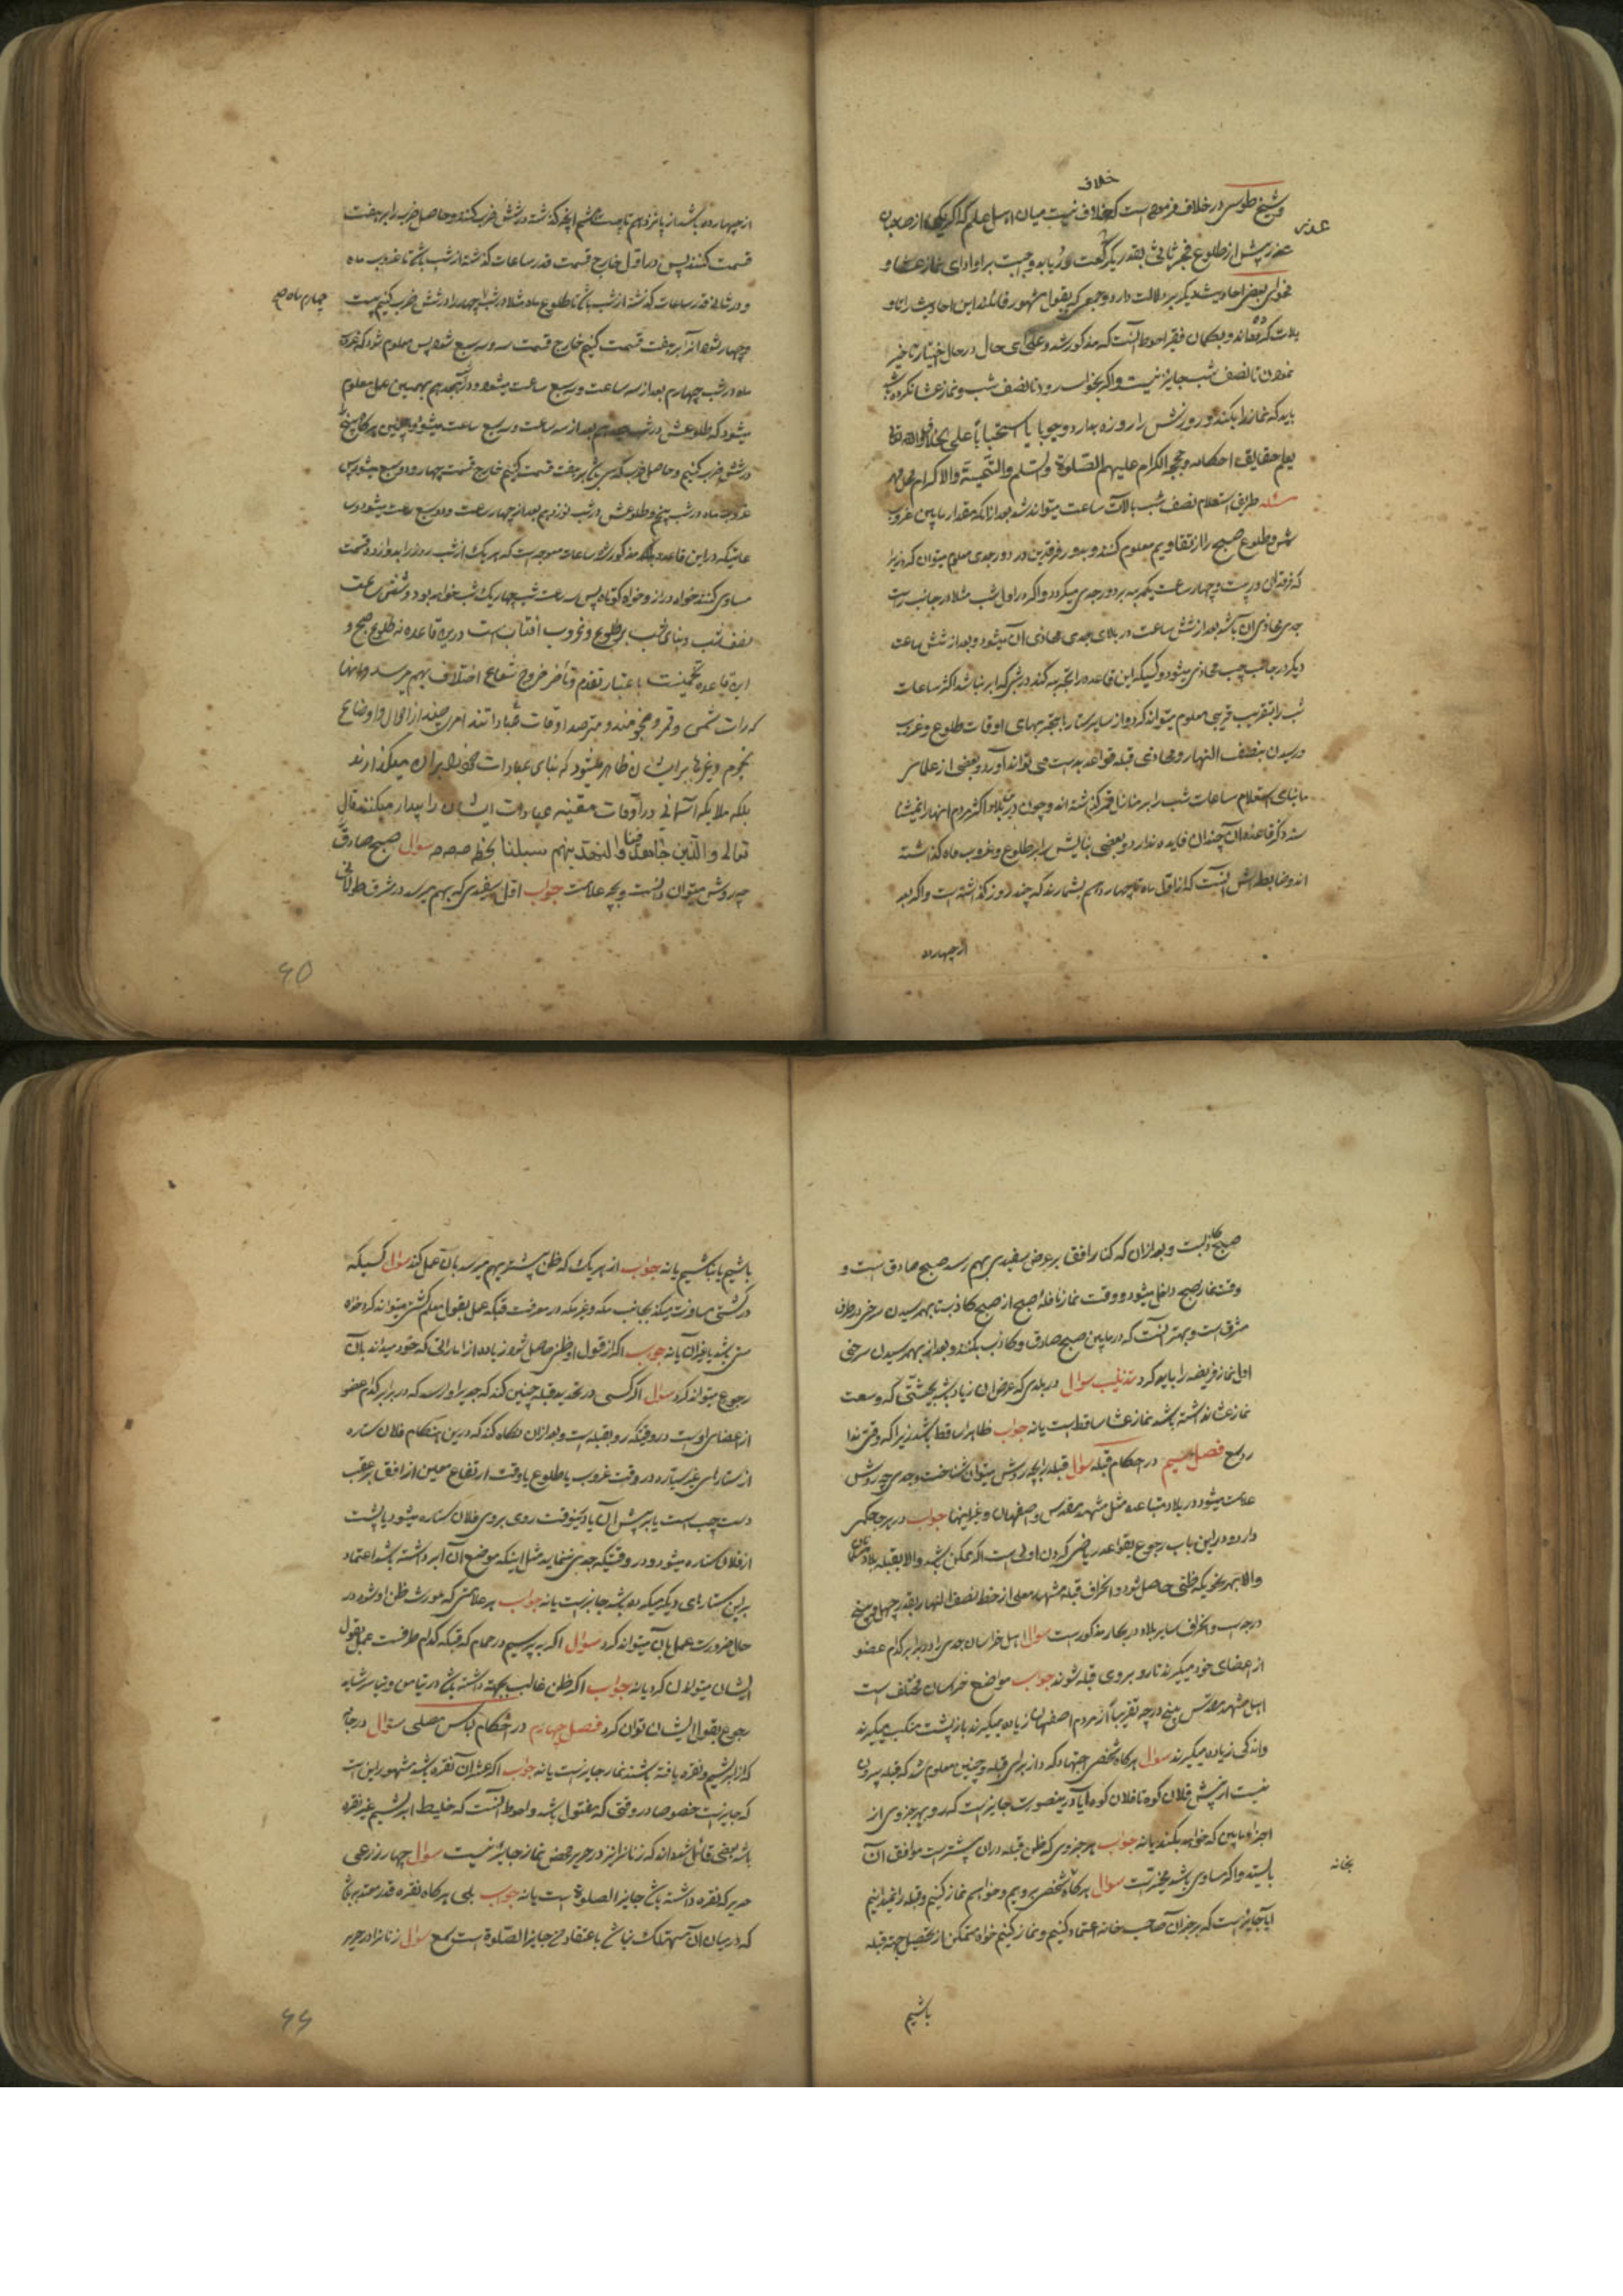 خلاف
و شیخ طوسی در خلاف فرموده است که خلاف نیست میان اهل علم که اگر یکی از صاحبان
عذر
عذر پیش از طلوع فجر ثانی بقدر یکرکعت دریابد واجبست بر او ادای نماز عشا و
فحوای بعض احادیث دیگر بر دلالت دارد و جمعی که بقول مشهور قائلند این احادیث را تاو
یلات کرده‌اند و بگمان فقیر احوط آنست که مذکور شد و علی ای حال در حال اختیار تاخیر
نمودن تا نصف شب جایز نیست و اگر بخواب رود تا نصف شب و نماز عشا نکرده باشد
باید که نماز را بکند و روزش را روزه بدارد وجوبا یا استحبابا علی
یعلم حقایق احکامه و حججه الکرام علیهم الصلوة والسلم والتحیة والاکرام
مسئله طریق استعلام نصف شب بآلات ساعت میتواند شد بعد از آنکه مقدار مابین غروب
شمس و طلوع صبح را از تقاویم معلوم کنند و بدور فرقدین در دور جدی معلوم میتوان کرد زیرا
که فرقدان در بیست و چهار ساعت یکمرتبه بر دور جدی میگردد و اگر در اول شب مثلا در جانب راست
جدی محاذی آن باشد بعد از شش ساعت در بالای جدی محاذی آن میشود و بعد از شش ساعت
دیگر در جانب چپ محاذی میشود و کسیکه این قاعده را تجربه کند در شبی که ابر نباشد اکثر ساعات
شب را بتقریب قریبی معلوم میتواند کرد و از سایر ستارها بتجربهای اوقات طلوع و غروب
و رسیدن بنصف النهار و محاذی قبله قواعد بدست می تواند آورد و بعضی از علماء
ما بنای استعلام ساعات شب را بر منازل قمر گذاشته اند و چون در این بلاد اکثر مردم آنها را نمیشنا
سند ذکر قاعده آن چندان فایده ندارد و بعضی بنایش را بر طلوع و غروب ماه گذاشته
اند و ضابطه اش آنست که از اول ماه تا چهاردهم بشمارند که چند روز گذاشته است و اگر بعد
از چهارده
از چهارده باشد از پانزدهم تا بیست هشتم آنچه گذشته در شش ضرب کنند و حاصل ضرب را بر هفت
قسمت کنند پس در اول خارج قسمت قدر ساعات گذشته از شب باشد تا غروب ماه
و در ثانی قدر ساعات گذشته از شب باشد تا طلوع ماه مثلا در شب چهار را در شش ضرب کنیم بیست
چهارم ماه
و چهار شود آنرا بر هفت قسمت کنیم خارج قسمت سه و سه سبع شود پس معلوم شود که غروب
ماه در شب چهارم بعد از سه ساعت و سه سبع ساعت میشود و در هیجدهم بهمین عمل معلوم
میشود که طلوعش در شب بعد از سه ساعت و سه سبع ساعت میشود و همچنین هرگاه پنج را
در شش ضرب کنیم و حاصل ضرب که سی باشد بر هفت قسمت کنیم خارج قسمت چهار و دو سبع میشود پس
غروب ماه در شب پنجم و طلوعش در شب نوزدهم بعد از چهار ساعت و دو سبع ساعت میشود و سا
عاتیکه در این قاعده مذکور شد ساعات معوجه است که هر یک از شب و روز را بدوازده قسمت
مساوی کنند خواه دراز و خواه کوتاه پس سه ساعت شب چهار یک شب خواهد بود و شش ساعت
نصف شب و بنای شب بر طلوع و غروب آفتاب است در این قاعده نه طلوع صبح و
این قاعده تخمینست باعتبار تقدم و تأخر خروج شعاع اختلاف بهم میرسد و آنها
که رات شمس و قمر و نجومند و مترصد اوقات عبادات‌اند امری چند از احوال و اوضاع
نجوم و غیرها بر ایشان ظاهر میشود که بنای عبادات خود را بر آن میگذارند
بلکه ملایکه آسمانی در اوقات معینه عبادت ایشان را بیدار میکنند قال
تعالی والذین جاهدوا فینا لنهدینهم سبلنا سوال صبح صادق
چه روش میتوان دانست و بچه علامت جواب اول سفیدی که بهم میرسد در شرق طولانی
۶۵
صبح کاذبست و بعد از آن که کنار افق بر عرض سفیدی بهم رسد صبح صادق است و
وقت نماز صبح داخل میشود و وقت نماز نافلهٔ صبح از صبح کاذبست تا بهم رسیدن سرخی در طرف
مشرق است و بهتر آنست که در مابین صبح صادق و کاذب بکنند و بعد از بهم رسیدن سرخی
اول نماز فریضه را باید کرد تذنیب سوال در بلدی که عرض آن زیاد باشد بحیثیتی که وسعت
نماز عشا نداشته باشد نماز عشا ساقط است یا نه جواب ظاهرا ساقط باشد زیرا که وقتی ندا
رد فصل سیم در احکام قبله سوال قبله را بچه روش میتوان شناخت و جدی چه روش
علامت میشود در بلاد متباعده مثل مشهد مقدس و اصفهان و غیر اینها جواب در هر جا حکمی
دارد و در این باب رجوع بقواعد ریاضی کردن اولی است اگر ممکن باشد والا بقبله بلاد
والا بهر نحویکه ظنی حاصل شود و انحراف قبله مشهد معلی از خط نصف النهار بقدر چهل و پنج
درجه است و انحراف سایر بلاد در بحار مذکور است سوال اهل خراسان جدی را در برابر کدام عضو
از اعضای خود میگیرند تا رو بروی قبله شوند جواب مواضع خراسان مختلف است
اهل مشهد مقدس پنج درجه تقریبا از مردم اصفهان زیاده میگیرند باز پشت منکب میگیرند
و اندکی زیاده میگیرند سوال هرگاه شخصی اجتهاد کرد از برای قبله و چنین معلوم شد که قبله بیرون
نیست از پیش فلان کوه تا فلان کوه آیا درینصورت جایز است که رو بهر جزوی از
اجزاء مابین که خواهد بکند یا نه جواب هر جزوی که ظن قبله در آن بیشتر است موافق آن
بایستد و اگر مساوی باشد مخیر است سوال هرگاه شخصی برویم و خواهیم نماز کنیم و قبله را ندانیم
بخانه
آیا جایز است که بر خبر آن صاحب خانه اعتماد کنیم و نماز کنیم خواه متمکن از تحصیل جهة قبله
باشیم
باشیم یا نباشیم یا نه جواب از هر یک که ظن بیشتر بهم میرسد بآن عمل کند سوال کسیکه
در کشتی مسافرت میکند بجانب مکه و غیر مکه در معرفت قبله عمل بقول معلم کشتی میتواند کرد خواه
سنی باشد یا غیر آن یا نه جواب اگر از قول او ظن حاصل شود زیاده از اماراتی که خود میداند بآن
رجوع میتواند کرد سوال اگر کسی در تحدید قبله چنین کند که جدی را وارسد که در برابر کدام عضو
از اعضای اوست در وقتیکه رو بقبله است و بعد از آن نگاه کند که درین هنگام فلان ستاره
از ستارهای غیر سیاره در وقت غروب یا طلوع یا وقت ارتفاع معین از افق بر عقب
دست چپ است یا بر پیش آن یا درینوقت روی بروی فلان ستاره میشود یا پشت
از فلان ستاره میشود و در وقتیکه جدی ننماید مثل اینکه موضع آن ابر داشته باشد اعتماد
بر این ستارهای دیگر میکرده باشد جایز است یا نه جواب هر علامتی که مورث ظن او شود در
حال ضرورت عمل بآن میتواند کرد سوال اگر بپرسیم در حمام که قبله کدام طرفست عمل بقول
ایشان میتوان کرد یا نه جواب اگر ظن غالب بجهت داشته باشد در تیامن و تیاسر شاید
رجوع بقول ایشان توان کرد فصل چهارم در احکام لباس مصلی سوال در جامه
که از ابریشم و نقره بافته باشند نماز جایز است یا نه جواب اگر عشر آن نقره باشد مشهور این است
که جایز است خصوصا در وقتی که مفتول باشد و احوط آنست که خلیط ابریشم غیر نقره
باشد بعضی قائل شده‌اند که زنانرا نیز در حریر محض نماز جایز نیست سوال چهار زرعی
حریر که نقره داشته باشد جایز الصلوة است یا نه جواب بلی هرگاه نقره قدر معتد به باشد
که در میان آن مستهلک نباشد باعتقاد من جایز الصلوة است سوال زنانرا در حریر
۶۶